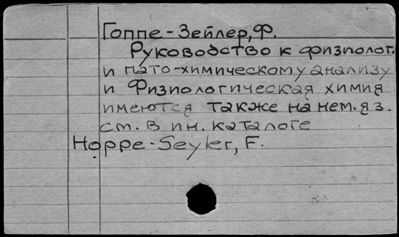 Гоппе-Зейлер, Ф.
Руководство к физиолог.
и пато-химическому анализу
и Физиологическая химия
имеются также на нем. яз.
см. в ин. каталоге
Hoppe-Seyler, F.